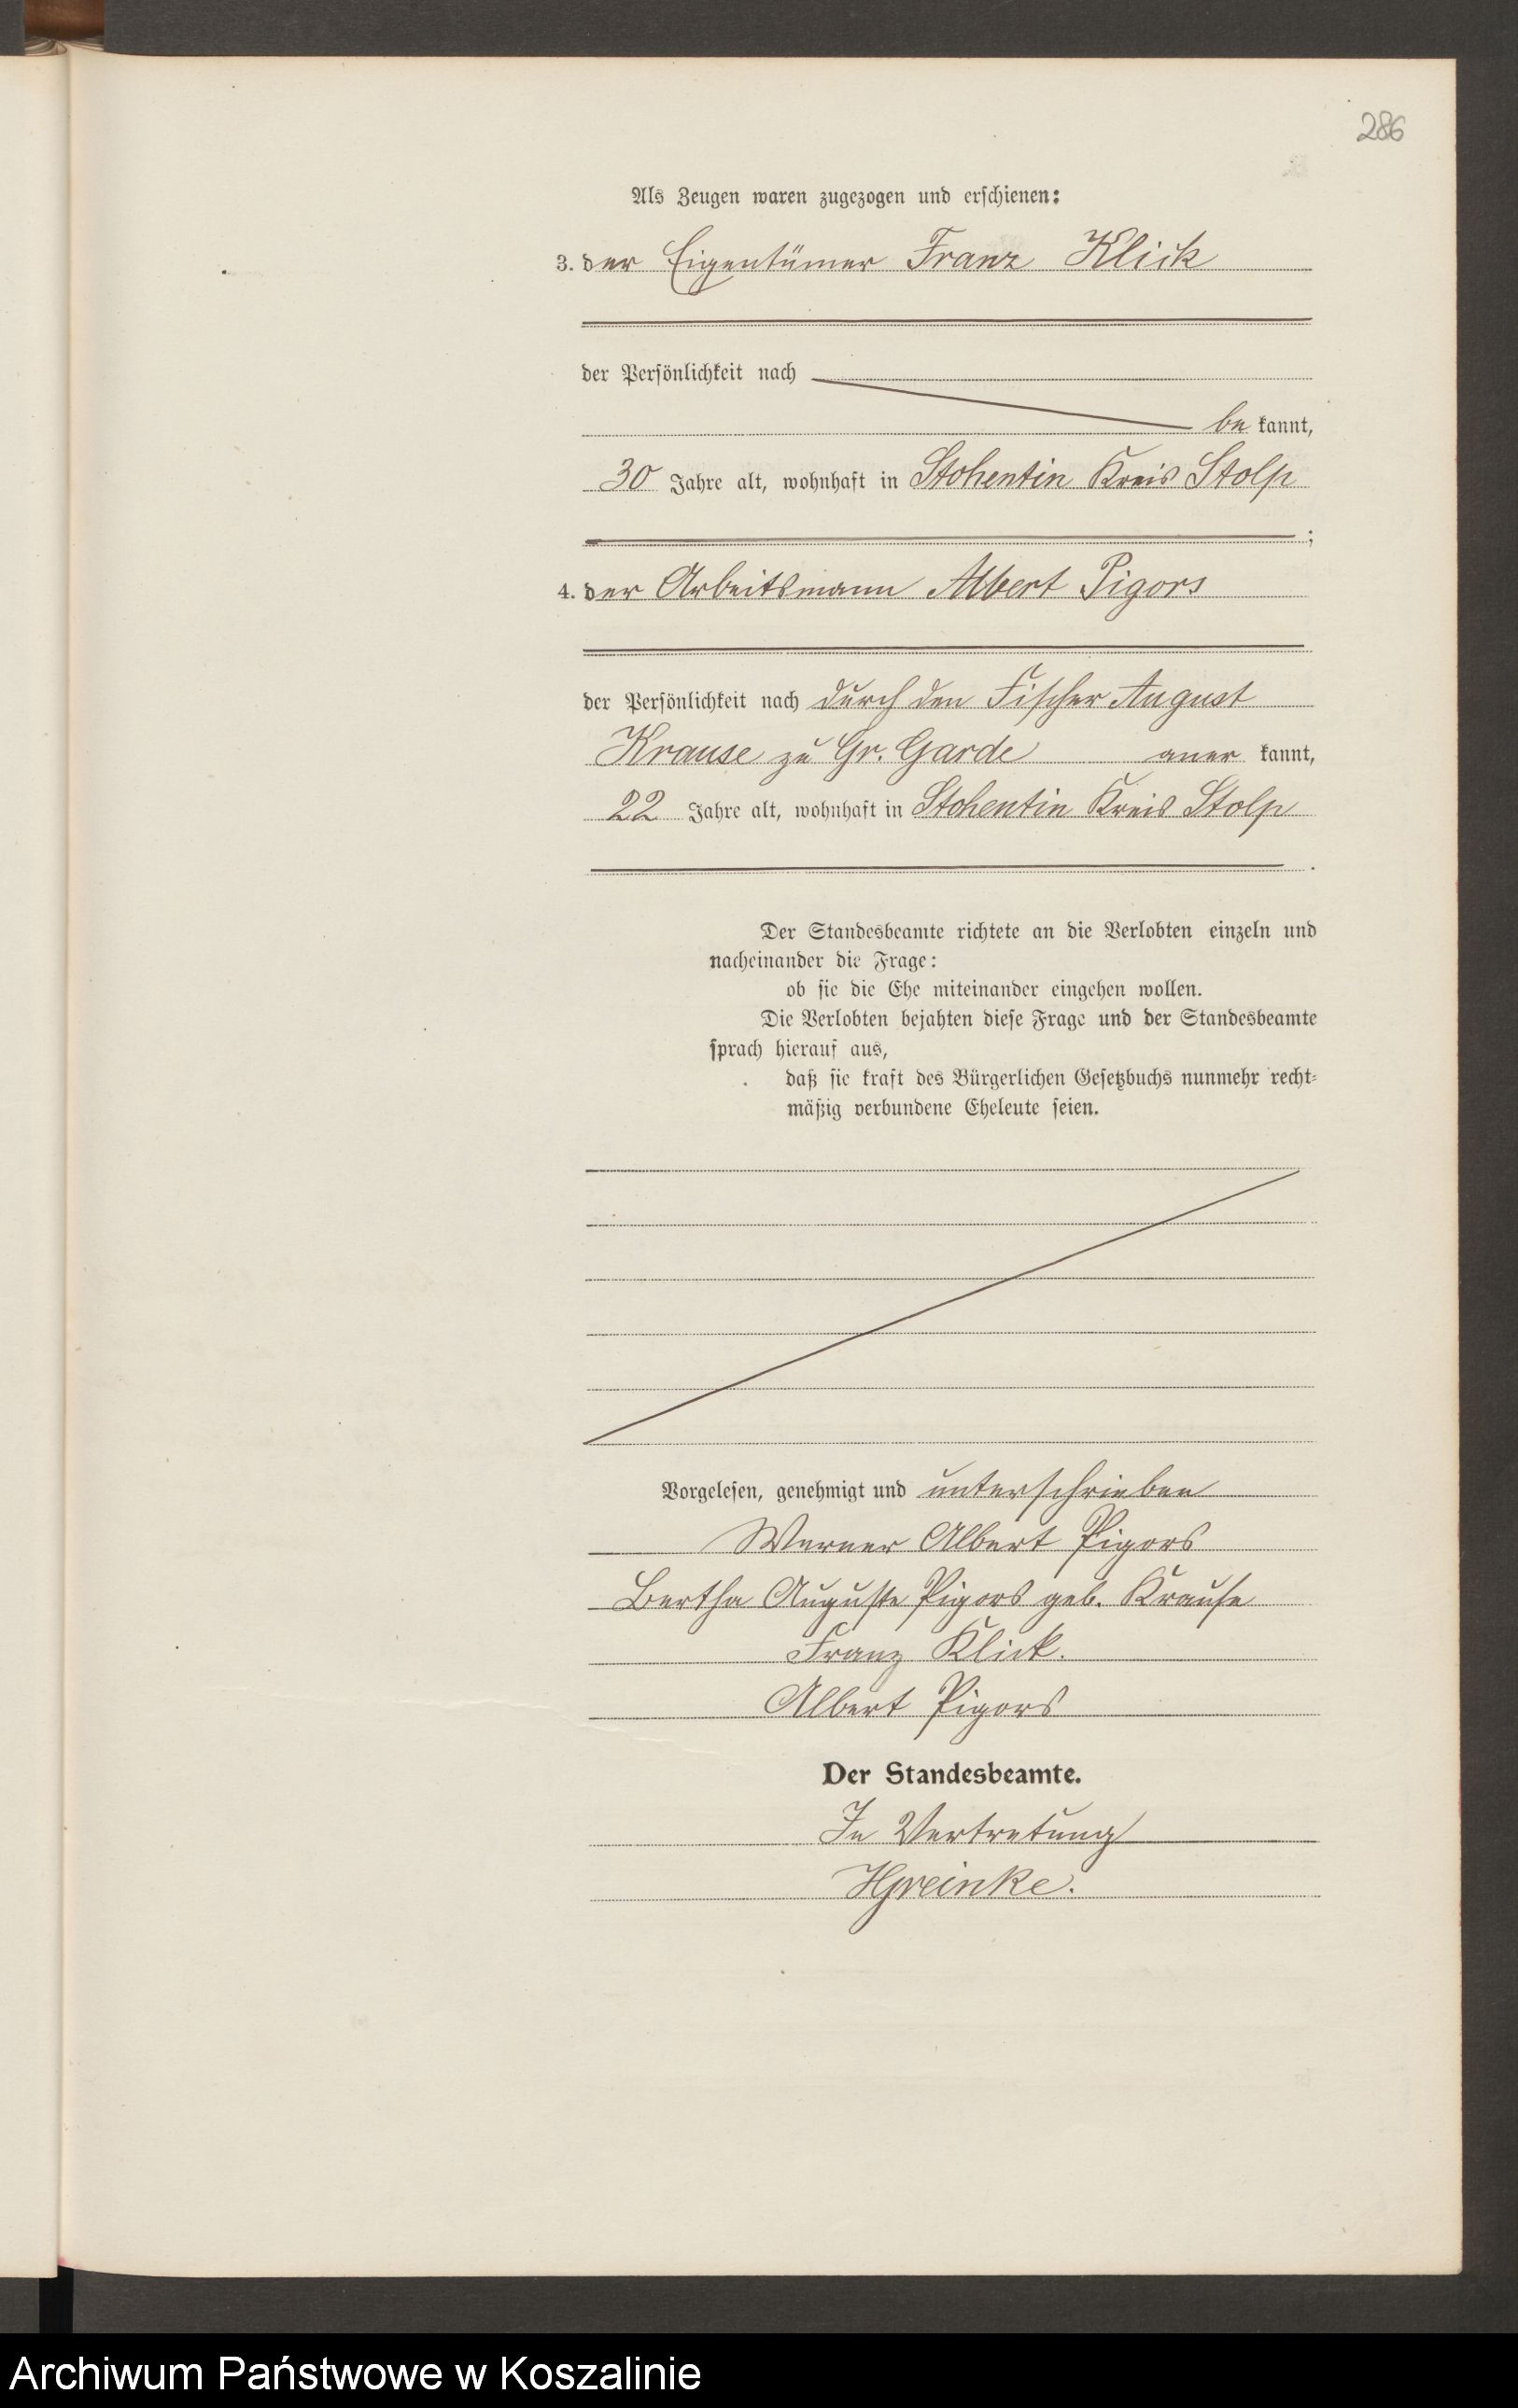 286
Als Zeugen waren zugezogen und erschienen:
3. der Eigentümer Franz Klick
der Persönlichkeit nach
be kannt,
30 Jahre alt, wohnhaft in Stohentin Kreis Stolp
;
4. der Arbeitsmann Albert Pigors
der Persönlichkeit nach durch den Fischer August
Krause zu Gr. Garde aner kannt,
22 Jahre alt, wohnhaft in Stohentin Kreis Stolp
.
Der Standesbeamte richtete an die Verlobten einzeln und
nacheinander die Frage:
ob sie die Ehe miteinander eingehen wollen.
Die Verlobten bejahten diese Frage und der Standesbeamte
sprach hierauf aus,
daß sie kraft des Bürgerlichen Gesetzbuchs nunmehr recht-
mäßig verbundene Eheleute seien.
Vorgelesen, genehmigt und unterschrieben
Werner Albert Pigors
Bertha Auguste Pigors geb. Krause
Franz Klick.
Albert Pigors
Der Standesbeamte.
In Vertretung
Archiwum Państwowe w Koszalinie